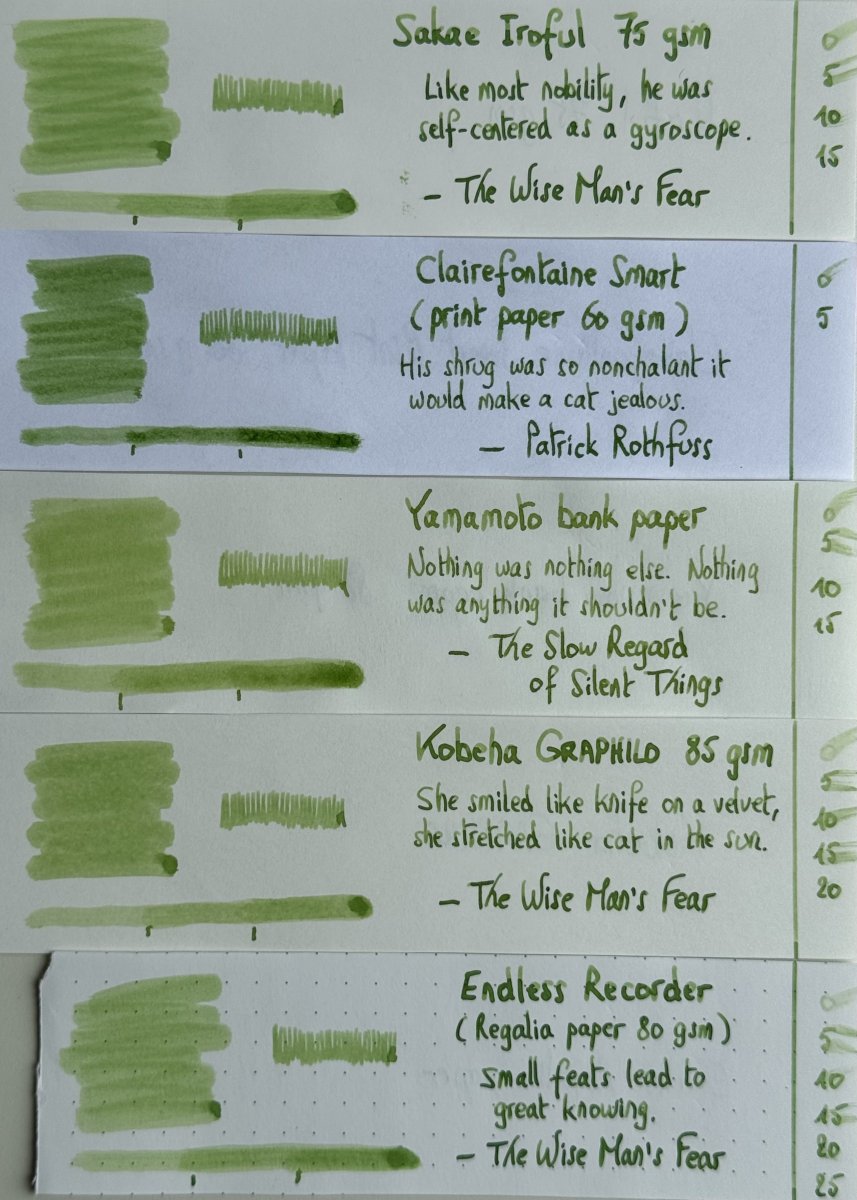 Sakae Iroful 75 gsm
Like most nobility, he was
self-centered as a gyroscope.
– The Wise Man's Fear
0
5
10
15
Clairefontaine Smart
(print paper 60 gsm)
His shrug was so nonchalant it
would make a cat jealous.
– Patrick Rothfuss
0
5
Yamamoto bank paper
Nothing was nothing else. Nothing
was anything it shouldn't be.
– The Slow Regard
of Silent Things
0
5
10
15
Kobeha GRAPHILO 85 gsm
She smiled like knife on a velvet,
she stretched like cat in the sun.
– The Wise Man's Fear
0
5
10
15
20
Endless Recorder
(Regalia paper 80 gsm)
Small feats lead to
great knowing.
– The Wise Man's Fear
0
5
10
15
20
25